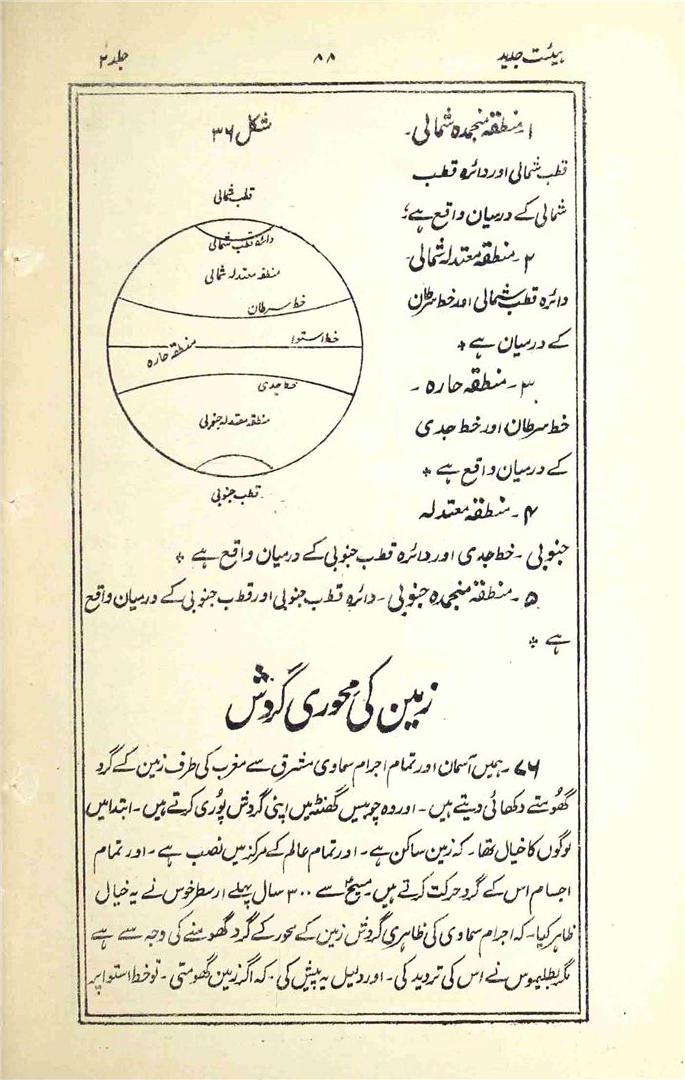 ہیئت جدید
۸۸
جلد ۲
۱۔ منطقہ منجمدہ شمالی۔
قطب شمالی اور دائرہ قطب
شمالی کے درمیان واقع ہے؛
۲۔ منطقہ معتدلہ شمالی۔
دائرہ قطب شمالی اور خط سرطان
کے درمیان ہے *
۳۔ منطقہ حارہ ۔
خط سرطان اور خط جدی
کے درمیان واقع ہے *
۴۔ منطقہ معتدلہ
شکل ۳۶
قطب شمالی
دائرہ قطب شمالی
منطقہ معتدلہ شمالی
خط سرطان
خط استوا
منطقہ حارہ
خط جدی
منطقہ معتدلہ جنوبی
قطب جنوبی
جنوبی ۔ خط جدی اور دائرہ قطب جنوبی کے درمیان واقع ہے *
۵۔ منطقہ منجمدہ جنوبی ۔ دائرہ قطب جنوبی اور قطب جنوبی کے درمیان واقع
ہے *
زمین کی محوری گردش
۷۶۔ ہمیں آسمان اور تمام اجرام سماوی مشرق سے مغرب کی طرف زمین کے گرد
گھومتے دکھائی دیتے ہیں۔ اور وہ چوبیس گھنٹہ میں اپنی گردش پوری کرتے ہیں۔ ابتدا میں
لوگوں کا خیال تھا۔ کہ زمین ساکن ہے۔ اور تمام عالم کے مرکز میں نصب ہے۔ اور تمام
اجسام اس کے گرد حرکت کرتے ہیں۔ مسیحؑ سے ۳۰۰ سال پہلے ارسطرخوس نے یہ خیال
ظاہر کیا۔ کہ اجرام سماوی کی ظاہری گردش زمین کے محور کے گرد گھومنے کی وجہ سے ہے
مگر بطلیموس نے اس کی تردید کی۔ اور دلیل یہ پیش کی ۔ کہ اگر زمین گھومتی ۔ تو خط استوا پر